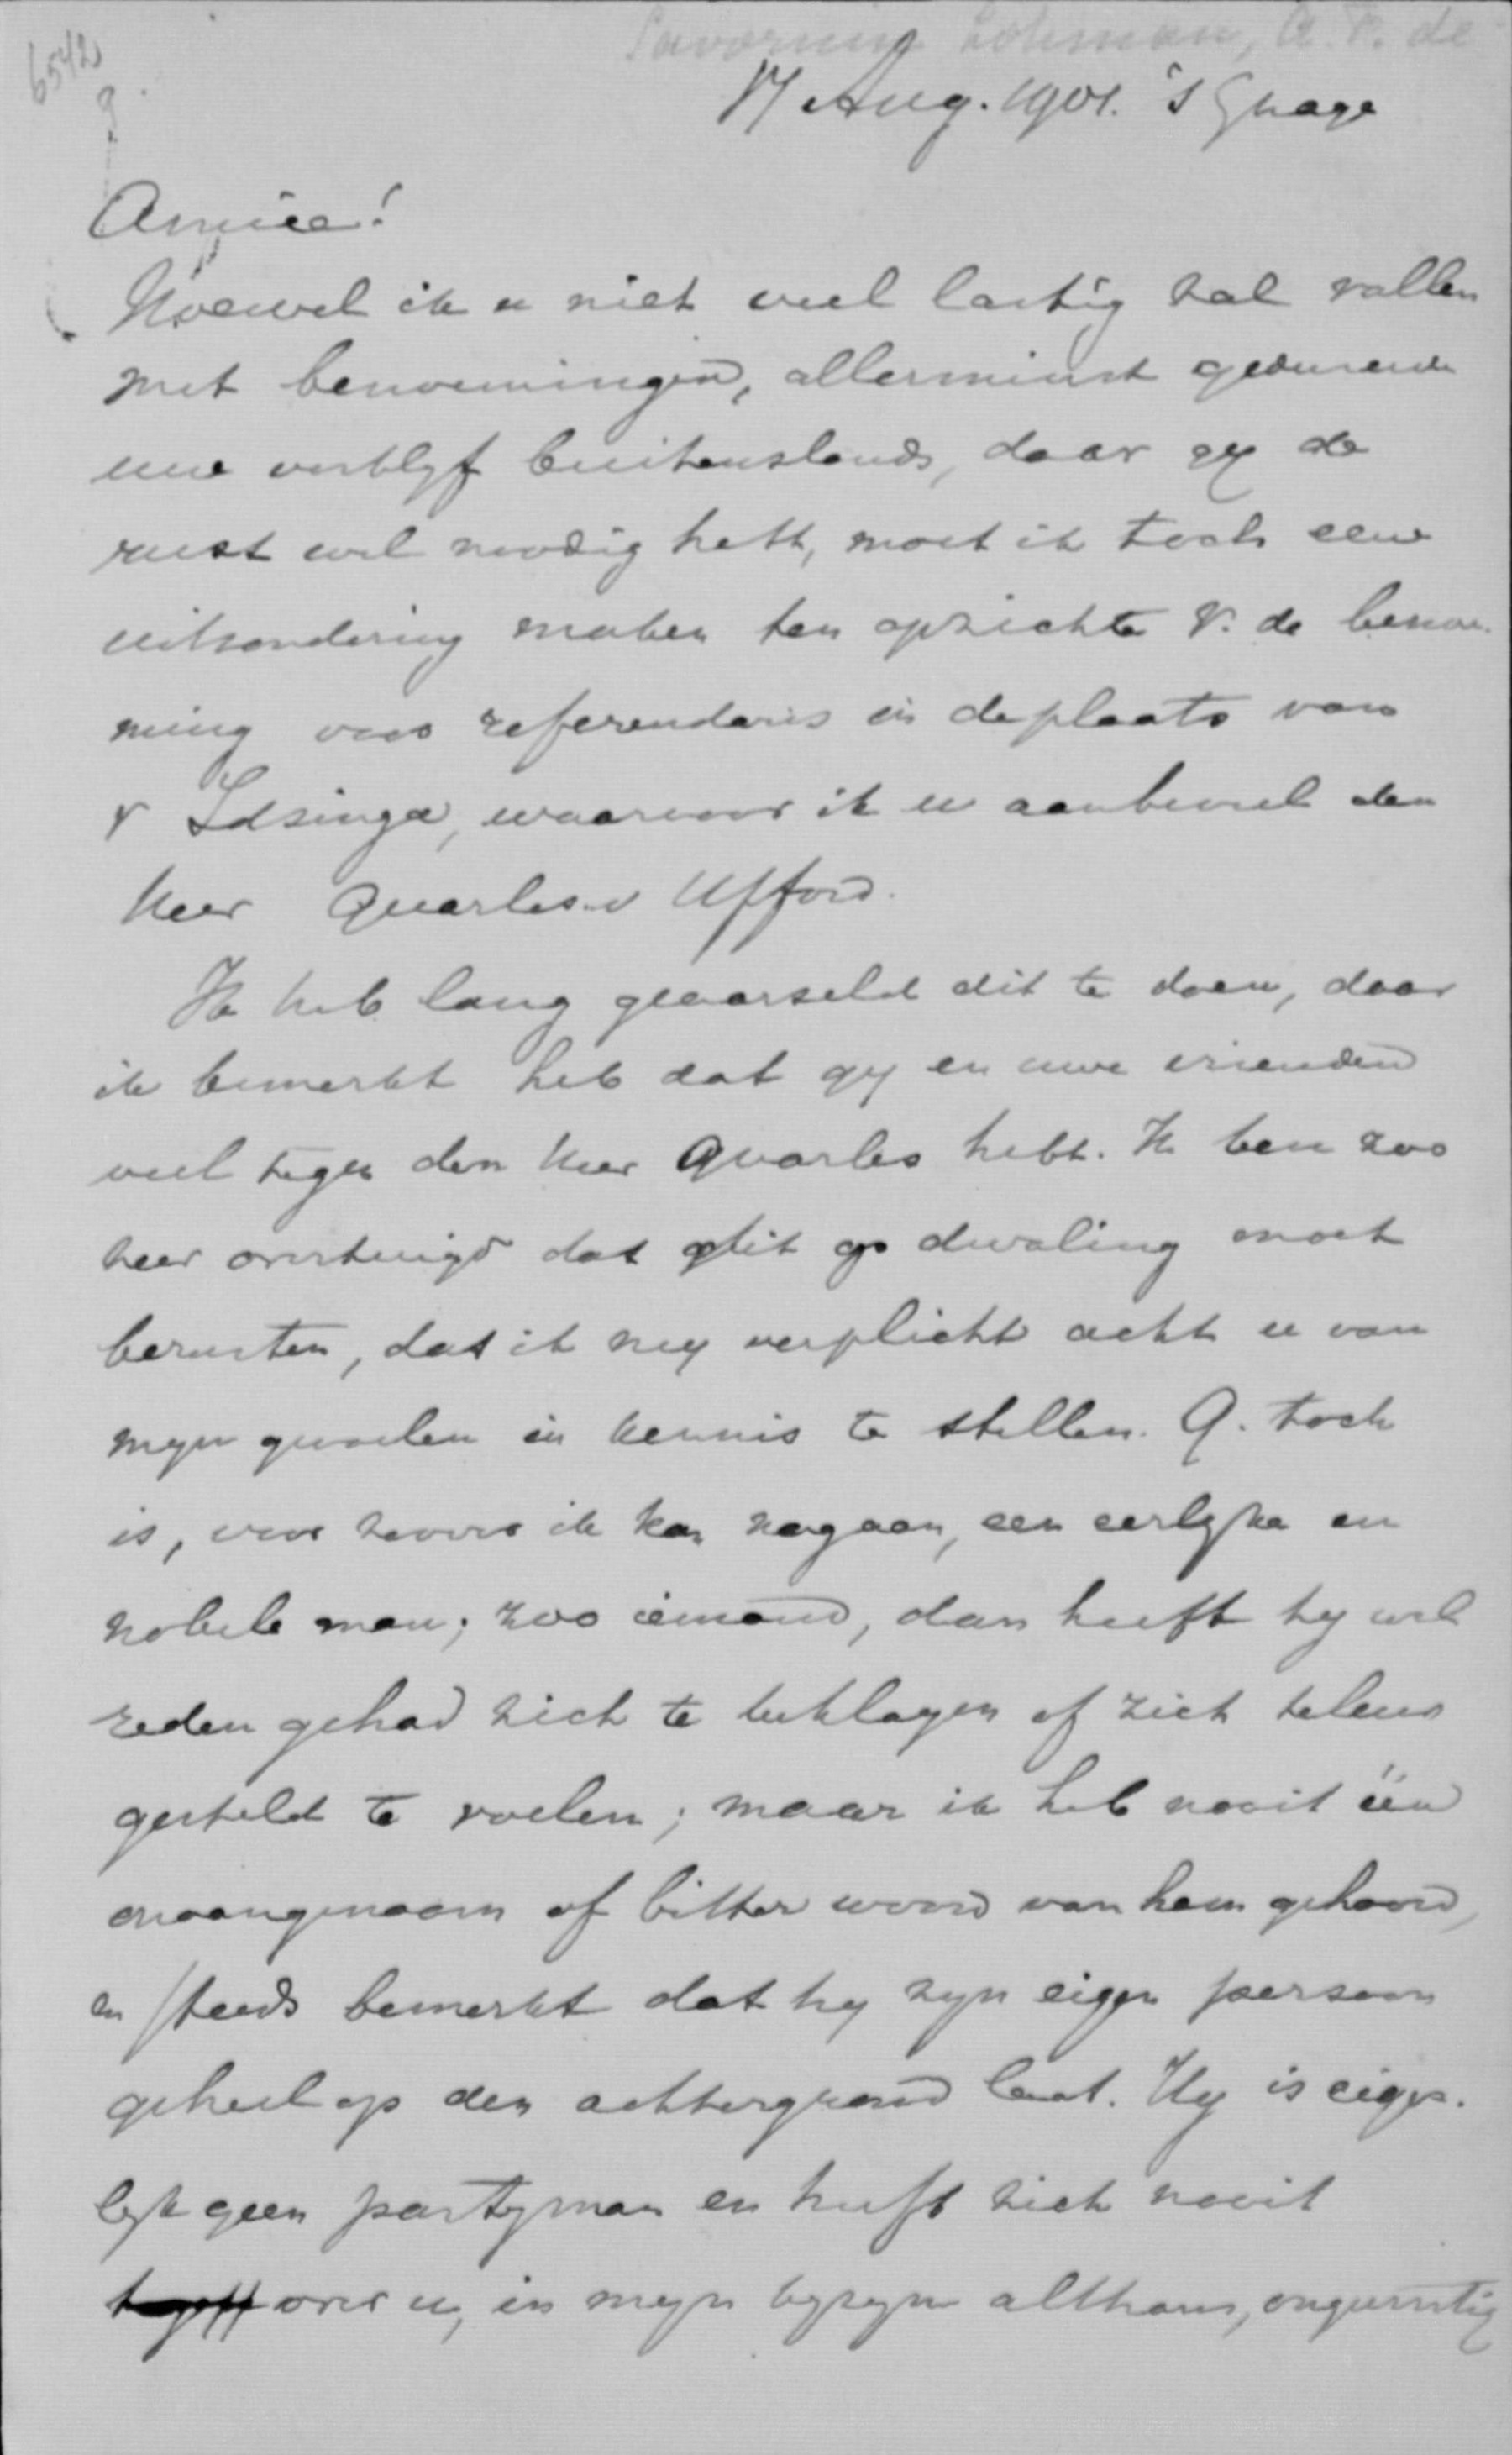 6542
Savornin Lohman, A. F. de
17 Aug. 1901. 's Ghage
Amice!
Hoewel ik u niet veel lastig zal vallen
met benoemingen, allerminst gedurende
uw verblyf buitenslands, daar gy de
rust wel noodig hebt, moet ik toch eene
uitzondering maken ten opzichte v. de benoe-
ming voor referendaris in de plaats van
v Idsinga, waarvoor ik u aanbeveel den
Heer Quarles v Ufford.
Ik heb lang geaarseld dit te doen, daar
ik bemerkt heb dat gy en uwe vrienden
veel tegen den Heer Quarles hebt. Ik ben zoo
zeer overtuigd dat dit op dwaling moet
berusten, dat ik my verplicht acht u van
myn gevoelen in kennis te stellen. Q. toch
is, voor zoover ik kan nagaan, een eerlyke en
nobele man; zoo iemand, dan heeft hy wel
reden gehad zich te beklagen of zich teleur
gesteld te voelen; maar ik heb nooit één
onaangenaam of bitter woord van hem gehoord,
en steeds bemerkt dat hy zyn eigen persoon
geheel op den achtergrond laat. Hy is eigen-
lyk geen partyman en heeft zich nooit
over u, in myn byzyn althans, ongunstig